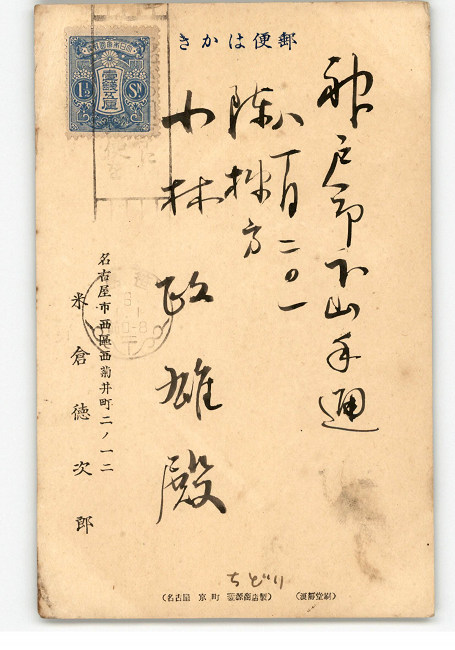 郵便はかき
大日本帝國郵便
壹錢五厘
1½ Sn
神戸市下山手通
八丁目二〇一
陳 方
小林政雄殿
名古屋市西區西菊井町二ノ一二
米倉徳次郎
ちどり
(名古屋 京町 商店製)